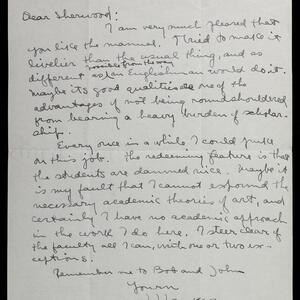 Dear Sherwood:
I am very much pleased that
you like the manual. I tried to make it
livelier than the usual thing, and as
possible from the way
different as an Englishman would do it.
Maybe its good qualities are one of the
advantages of not being roundshouldered
from bearing a heavy burden of scholar-
ship.
Every once in a while, I could puke
on this job. The redeeming feature is that
the students are damned nice. Maybe it
is my fault that I cannot expound the
necessary academic theories of art, and
certainly I have no academic approach
in the work I do here. I steer clear of
the faculty all I can, with one or two ex-
ceptions.
Remember me to Bob and John
Yourn